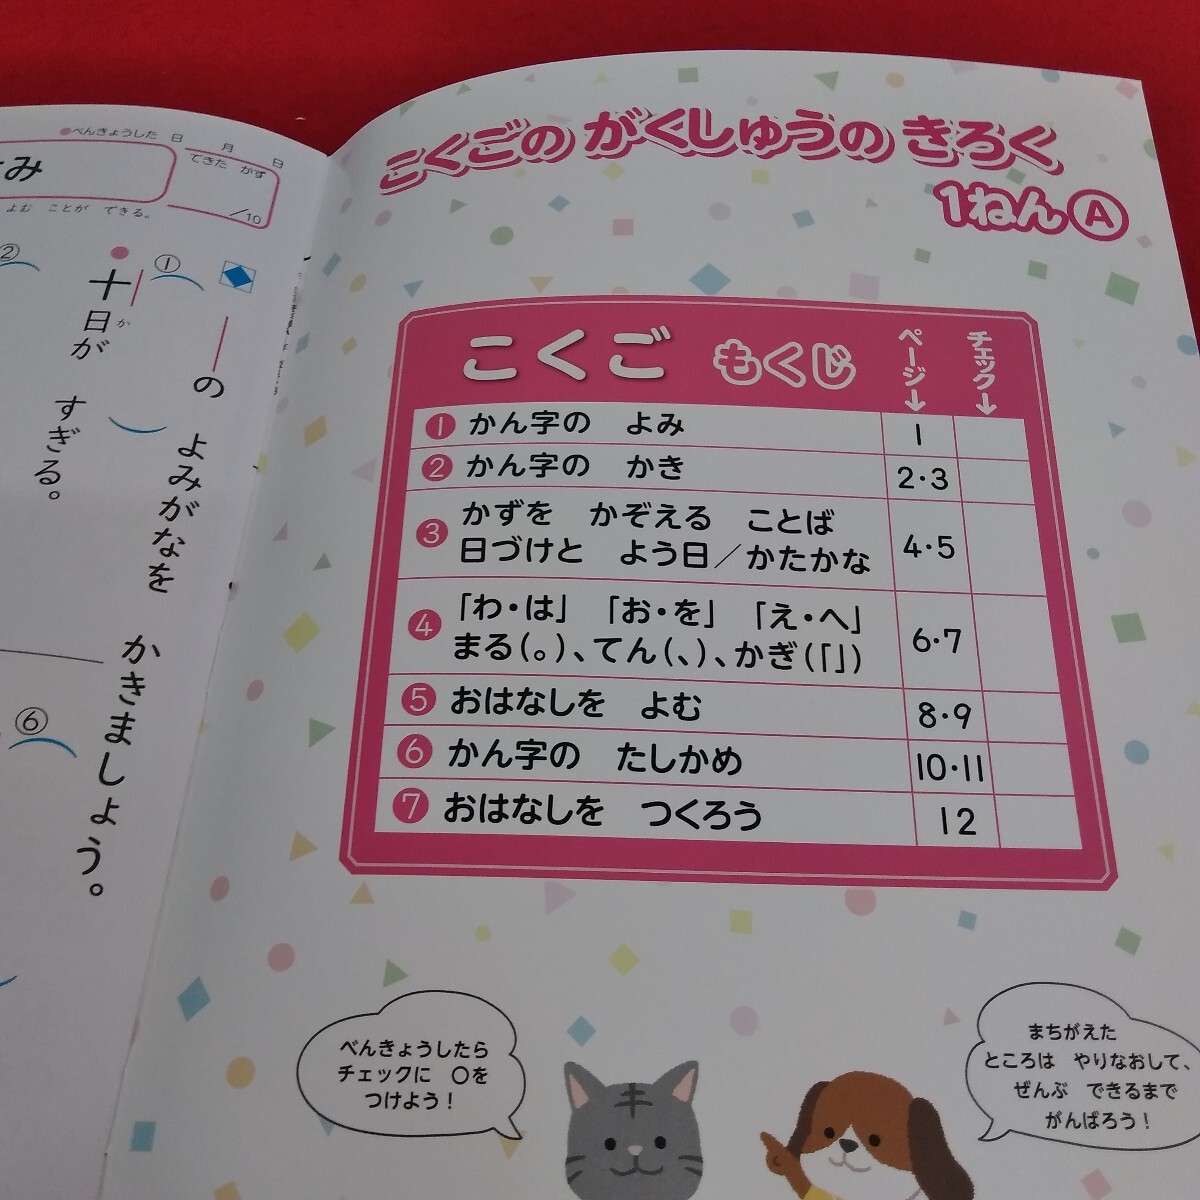 こくごの がくしゅうの きろく
1ねん Ⓐ
こくご もくじ
ページ↓
チェック↓
❶ かん字の よみ 1
❷ かん字の かき 2・3
❸ かずを かぞえる ことば
日づけと よう日／かたかな 4・5
❹ 「わ・は」 「お・を」 「え・へ」
まる(。)、てん(、)、かぎ(「」) 6・7
❺ おはなしを よむ 8・9
❻ かん字の たしかめ 10・11
❼ おはなしを つくろう 12
べんきょうしたら
チェックに ○を
つけよう！
まちがえた
ところは やりなおして、
ぜんぶ できるまで
がんばろう！
●べんきょうした 日 月 日
よみ
よむ ことが できる。
できた かず
／10
の よみがなを かきましょう。
①
十日が すぎる。
か
②
⑥